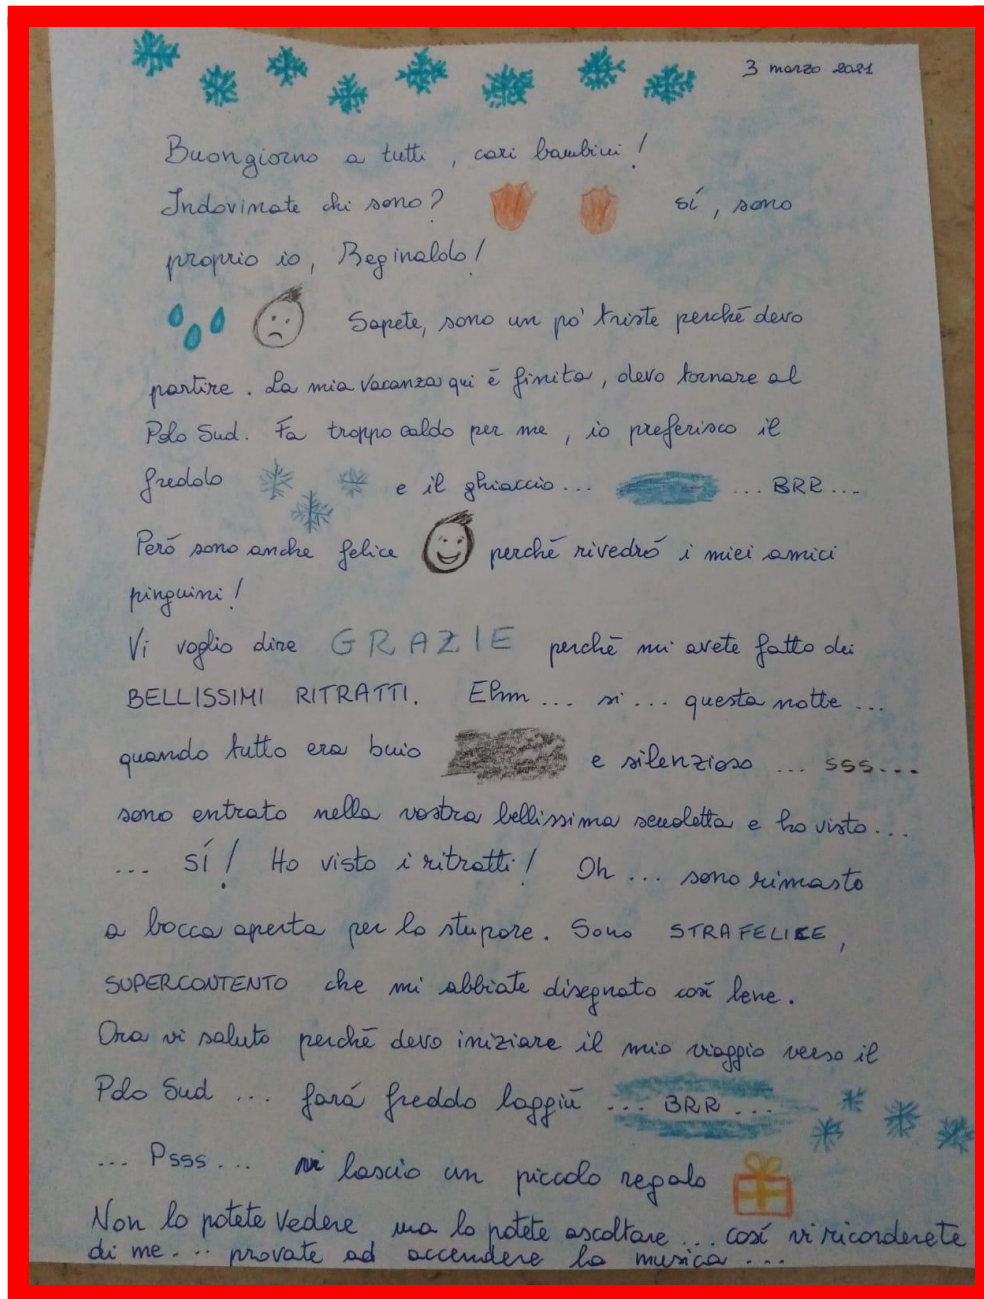 3 marzo 2021
Buongiorno a tutti, cari bambini!
Indovinate chi sono? sí, sono
proprio io, Reginaldo!
Sapete, sono un po' triste perché devo
partire. La mia vacanza qui è finita, devo tornare al
Polo Sud. Fa troppo caldo per me, io preferisco il
freddo e il ghiaccio... ...BRR...
Peró sono anche felice perché rivedró i miei amici
pinguini!
Vi voglio dire GRAZIE perchè mi avete fatto dei
BELLISSIMI RITRATTI. Ehm... si... questa notte...
quando tutto era buio e silenzioso ... sss...
sono entrato nella vostra bellissima scuoletta e ho visto...
... SÍ! Ho visto i ritratti! Oh ... sono rimasto
a bocca aperta per lo stupore. Sono STRAFELICE,
SUPERCONTENTO che mi abbiate disegnato così bene.
Ora vi saluto perchè devo iniziare il mio viaggio verso il
Polo Sud ... fará freddo laggiù ... BRR ...
... Psss... vi lascio un piccolo regalo
Non lo potete vedere ma lo potete ascoltare ... cosí vi ricorderete
di me... provate ad accendere la musica ...